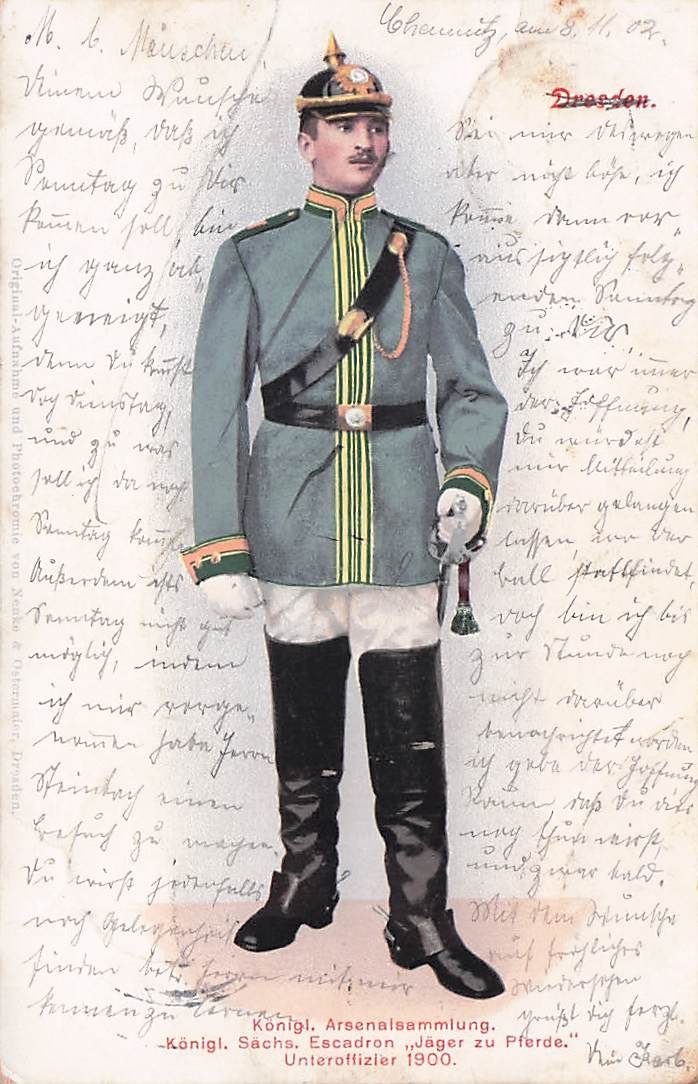 Chemnitz, am 8. 11. 02.
M. l. Mäuschen!
Deinem Wunsche
gemäß, daß ich
Sonntag zu Dir
kommen soll, bin
ich ganz ab-
geneigt,
denn Du kommst
doch Dienstag,
und zu was
soll ich da noch
Sonntag kommen
Außerdem ists
Sonntag nicht gut
möglich, indem
ich mir vorge-
nommen habe Herrn
Steinbach einen
Besuch zu machen
Du wirst jedenfalls
noch Gelegenheit
finden betr. Herrn mit mir
kennen zu lernen
Dresden.
Sei mir deswegen
aber nicht böse, ich
komme dann vor-
aussichtlich folg-
enden Sonntag
zu Dir
Ich war immer
der Hoffnung,
Du würdest
mir Mitteilung
darüber gelangen
lassen wo der
Ball stattfindet
doch bin ich bis
zur Stunde noch
nicht darüber
benachrichtet worden
ich gebe der Hoffnung
Raum, daß Du dies
noch thun wirst,
und zwar bald.
Mit dem Wunsche
auf fröhliches
Wiedersehen
grüßt Dich herzl.
Dein
Original-Aufnahme und Photochromie von Nenke & Ostermaier, Dresden.
Königl. Arsenalsammlung.
Königl. Sächs. Escadron „Jäger zu Pferde."
Unteroffizier 1900.